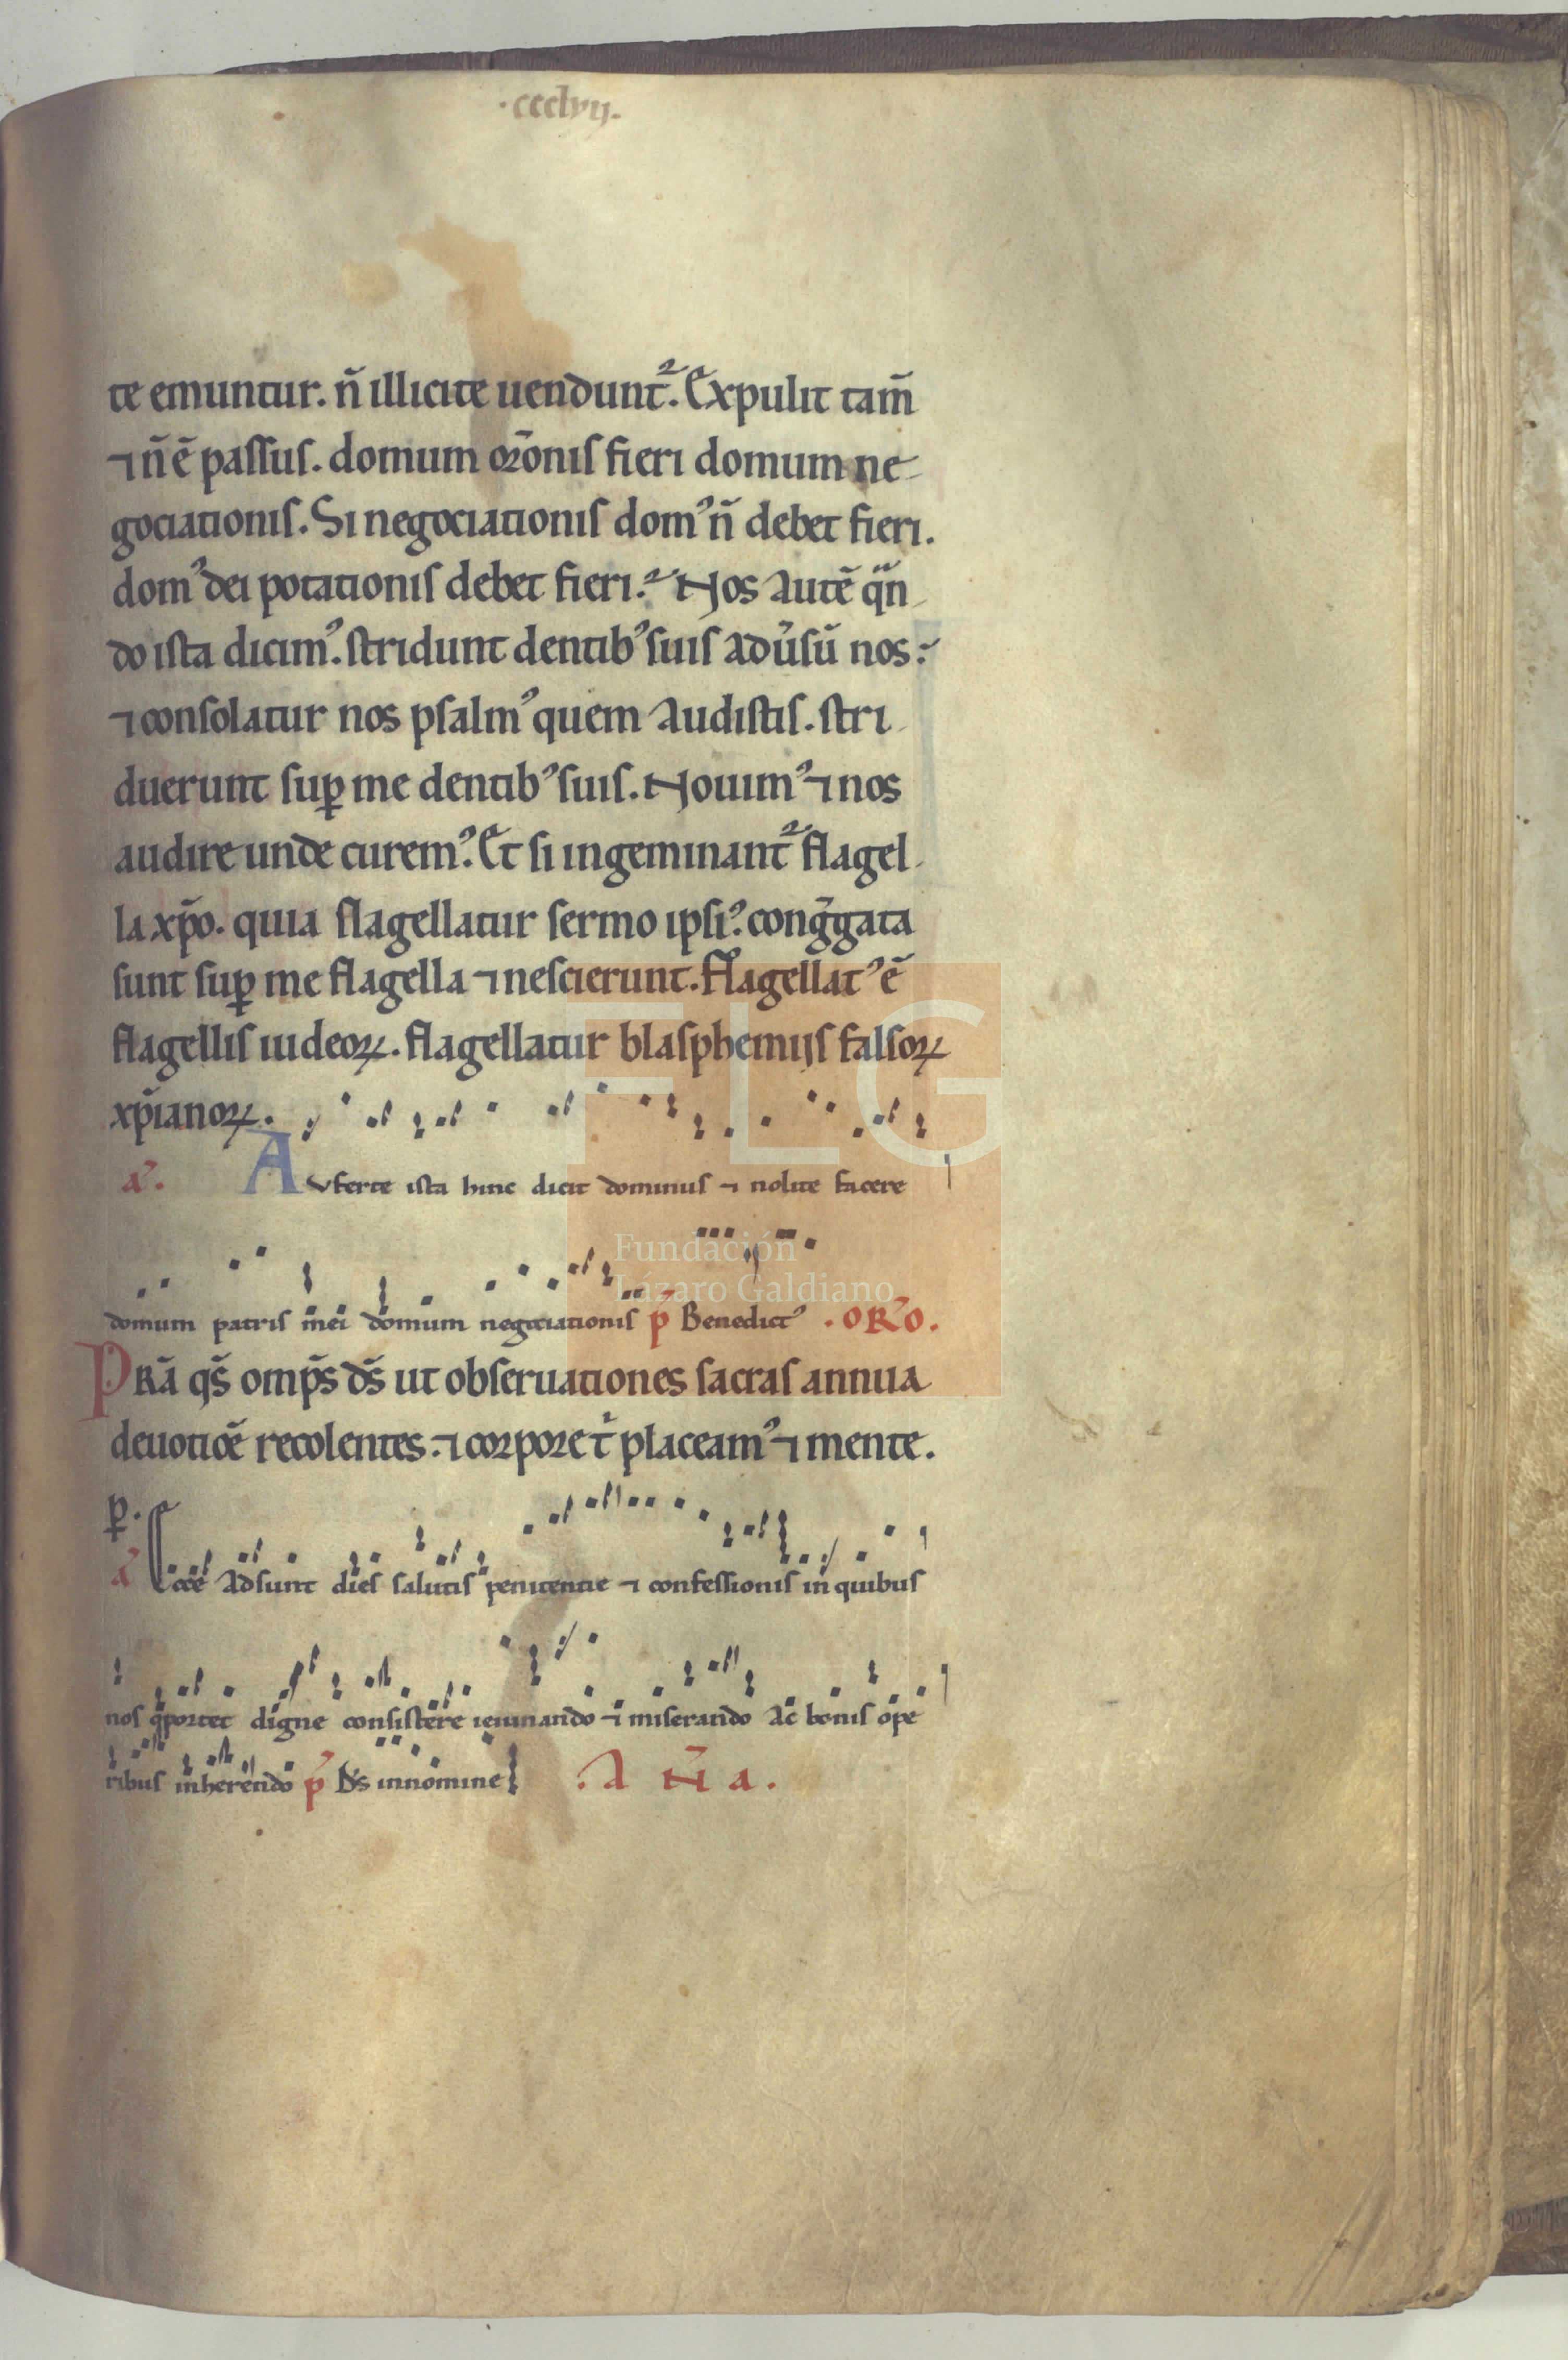 ·ccclvij·
te emuntur. ñ illicite uendunt᷑. Expulit tam̃
⁊ ñ ẽ passus. domum orõnis fieri domum ne
gociationis. Si negociationis domꝰ ñ debet fieri.
domꝰ dei potationis debet fieri? Nos autẽ qᷓn
do ista dicimꝰ. stridunt dentibꝰ suis adũsũ nos:
⁊ consolatur nos psalmꝰ quem audistis. stri
duerunt suꝑ me dentibꝰ suis. Nouimꝰ ⁊ nos
audire unde curemꝰ. Et si ingeminant᷑ flagel
la xp̃o. quia flagellatur sermo ipsiꝰ. cong̃gata
sunt suꝑ me flagella ⁊ nescierunt. Flagellatꝰ ẽ
flagellis iudeoꝝ. flagellatur blasphemijs falsoꝝ
xp̃ianoꝝ.
a᷑. Auferte ista hinc dicit dominus ⁊ nolite facere
domum patris mei domum negociationis p̃ Benedictꝰ . ORO̅.
PRã qs̃ omp̃s ds̃ ut obseruationes sacras annua
deuotiõe recolentes. ⁊ corpore t̃ placeamꝰ ⁊ mente.
ꝑ.
ã Ecce adsunt dies salutis penitentie ⁊ confessionis in quibus
nos oportet digne consistere ieiunando ⁊ miserando ac bonis ope
ribus inherendo p̃ Ds̃ in nomine . A Ñ a .
FLG
Fundación
Lázaro Galdiano